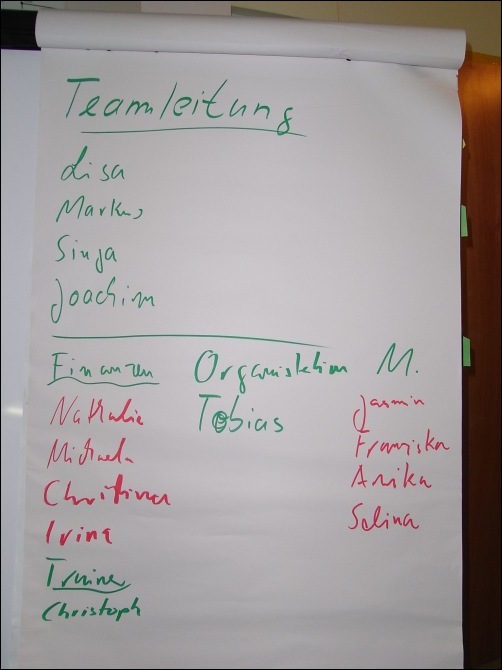 Teamleitung
Lisa
Markus
Sinja
Joachim
Finanzen
Nathalie
Michaela
Christina
Irina
Trainer
Christoph
Organisation
Tobias
M.
Jasmin
Franziska
Anika
Selina